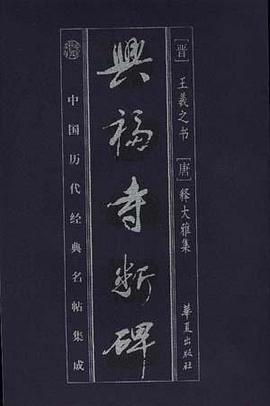 [晋] 王羲之书 [唐] 释大雅集
興福寺断碑
中国历代经典名帖集成
華夏出版社